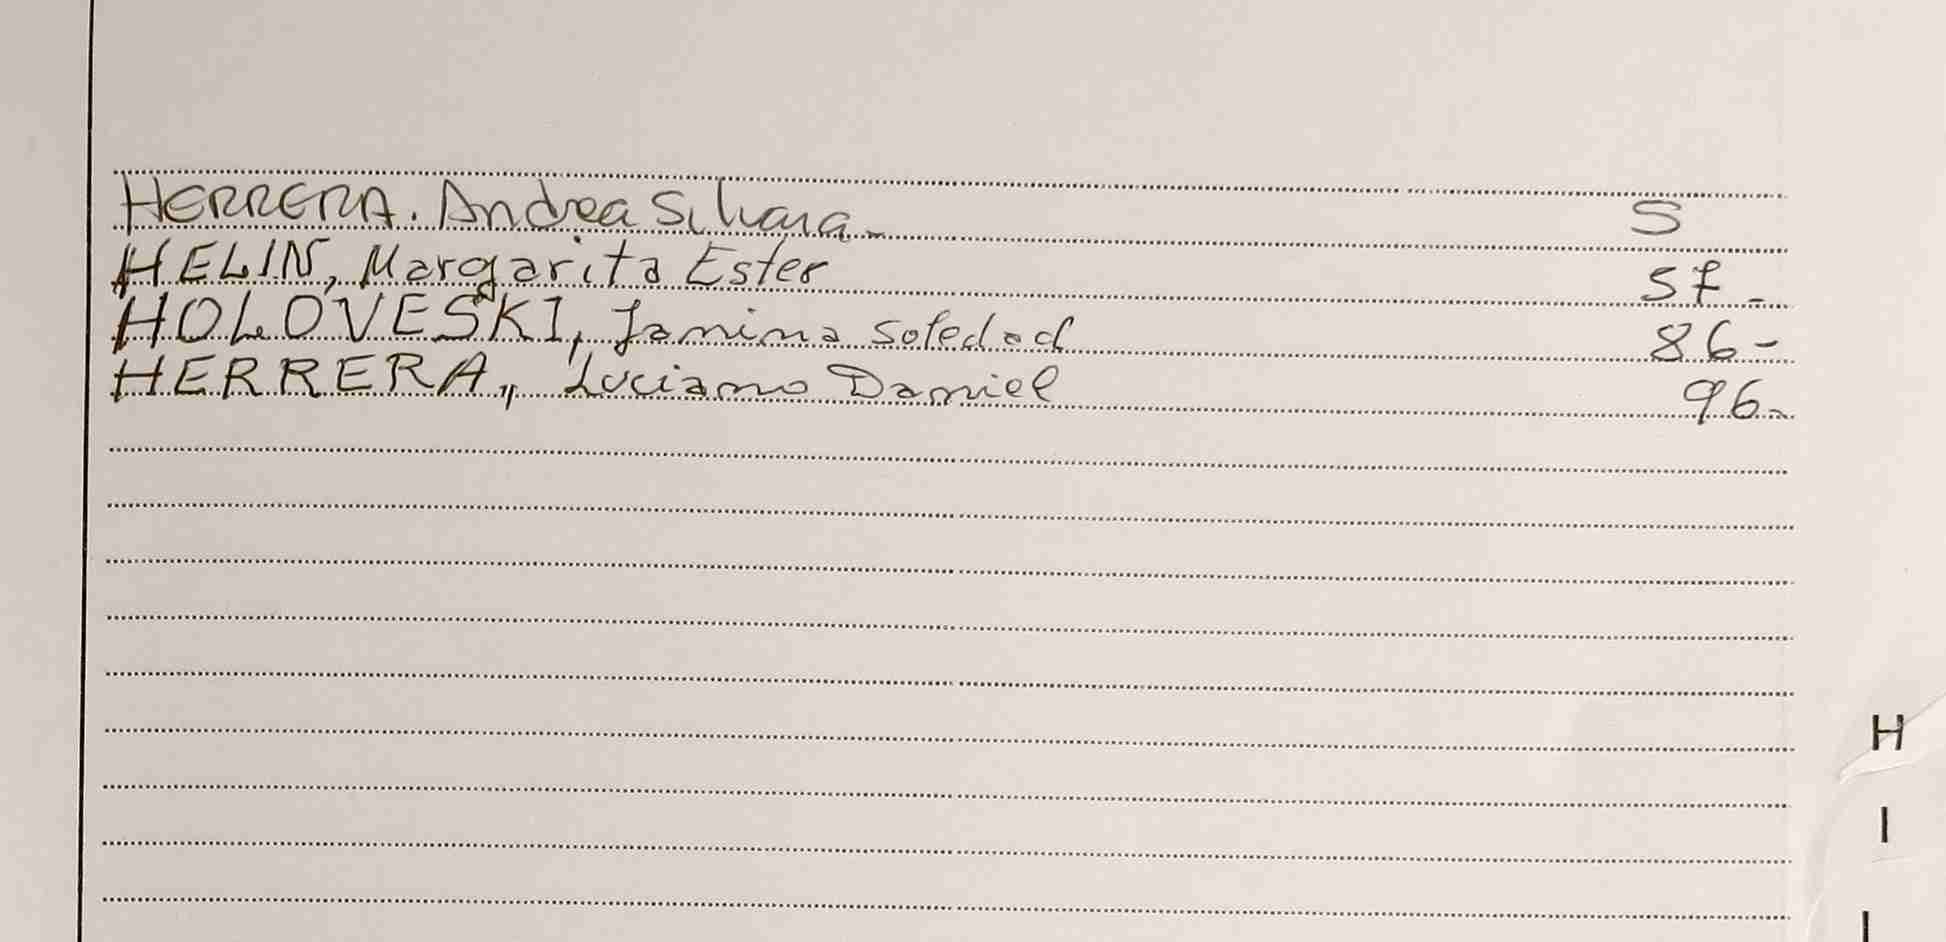 HERRERA. Andrea Silvana. 5
HELIN, Margarita Ester 57-
HOLOVESKI, Jamina Soledad 86-
HERRERA, Luciano Daniel 96-
H
I